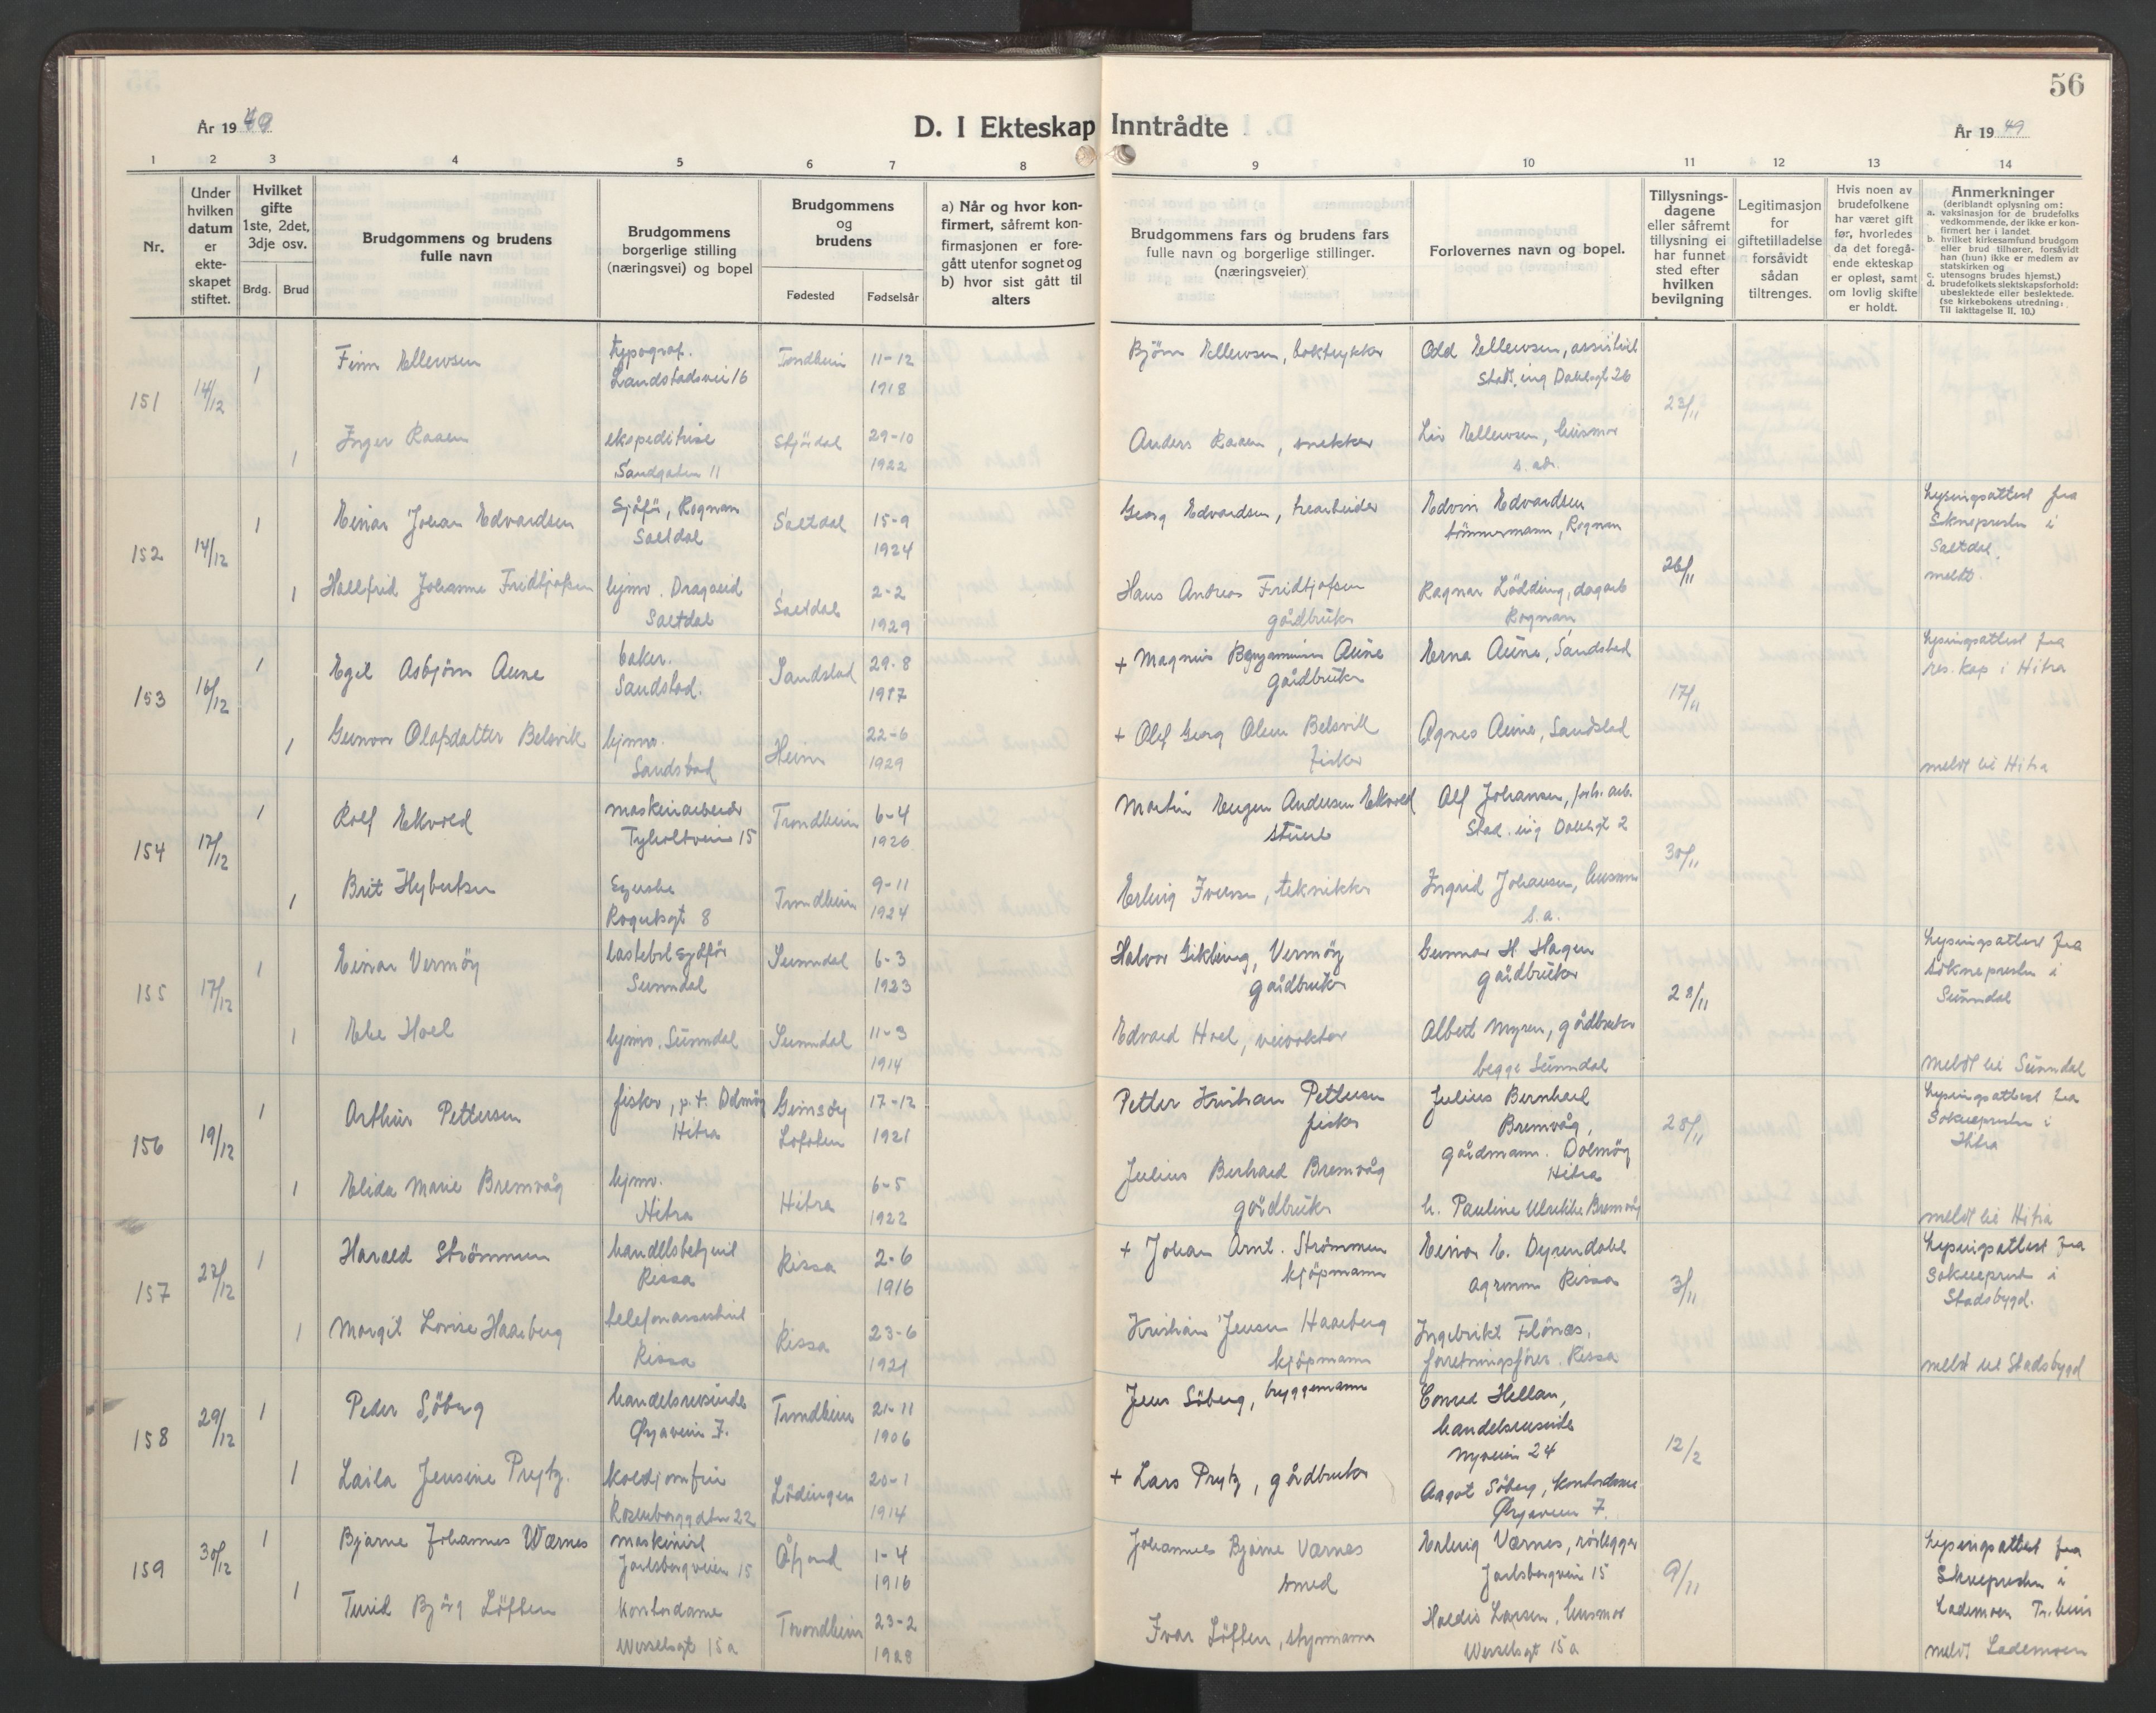 56
År 1949
D. I Ekteskap Inntrådte
År 1949
1 2 3 4 5 6 7 8 9 10 11 12 13 14
Nr.
Under hvilken datum er ekteskapet stiftet.
Hvilket gifte 1ste, 2det, 3dje osv.
Brdg. Brud
Brudgommens og brudens fulle navn
Brudgommens borgerlige stilling (næringsvei) og bopel
Brudgommens og brudens
Fødested Fødselsår
a) Når og hvor konfirmert, såfremt konfirmasjonen er foregått utenfor sognet og b) hvor sist gått til alters
Brudgommens fars og brudens fars fulle navn og borgerlige stillinger. (næringsveier)
Forlovernes navn og bopel.
Tillysningsdagene eller såfremt tillysning ei har funnet sted efter hvilken bevilgning
Legitimasjon for giftetilladelse forsåvidt sådan tiltrenges.
Hvis noen av brudefolkene har været gift før, hvorledes da det foregående ekteskap er opløst, samt om lovlig skifte er holdt.
Anmerkninger
(deriblandt oplysning om:
a. vaksinasjon for de brudefolks vedkommende, der ikke er konfirmert her i landet
b. hvilket kirkesamfund brudgom eller brud tilhører, forsåvidt han (hun) ikke er medlem av statskirken og
c. utensogns brudes hjemst.)
d. brudefolkets slektskapsforhold: ubeslektede eller beslektede.
(se kirkebokens utredning: Til iakttagelse II. 10.)
151 14/12 1 Finn Ellewsen typograf. Landstadsvei 16 Trondheim 11-12 1918 Bjørn Ellewsen, boktrykker Odd Ellewsen, assistent Stad. ing Dahlsgt 26 23/11
1 Inger Raaen ekspeditrise Sandgaten 11 Stjördal 29-10 1922 Anders Raaen, snekker Liv Ellewsen, husmor s. adr.
152 14/12 1 Einar Johan Edvardsen Sjåför, Rognan Saltdal Saltdal 15-9 1924 Georg Edvardsen, trearbeider Edvin Edvardsen tömmermann, Rognan 26/11 Lysingsattest fra Soknepresten i Saltdal. meldt.
1 Hallfrid Johanne Fridtjofsen hjmv. Drageid Saltdal Saltdal 2-2 1929 Hans Andreas Fridtjofsen gårdbruker Ragnar Lödding, dagarb Rognan
153 16/12 1 Egil Asbjørn Aune baker. Sandstad. Sandstad 29-8 1917 + Magnus Benjaminsen Aune gårdbruker Erna Aune, Sandstad 17/11 Lysingsattest fra res. kap i Hitra
1 Gunvor Olafsdatter Belsvik hjmv. Sandstad Heim 22-6 1929 + Olef Georg Olsen Belsvik fisker Agnes Aune, Sandstad meldt til Hitra
154 17/12 1 Rolf Ekvold maskinarbeider Tyholtveien 15 Trondheim 6-4 1926 Martin Eugen Andersen Ekvold stuert Alf Johansen, forh. arb. Stad. ing Dahlsgt 2 30/11
1 Brit Hybertsen Sykepl. 8 Trondheim 9-11 1924 Erling Iversen, tekniker Ingrid Johansen, husmor s.a.
155 17/12 1 Einar Vermöy lastebilsjåför Sunndal Sunndal 6-3 1923 Halvor Gikling, Vermöy gårdbruker Gunnar H Hagen gårdbruker 28/11 Lysingsattest fra Soknepresten i Sunndal
1 Else Hoel hjmv. Sunndal Sunndal 11-3 1914 Edvard Hoel, veivokter Albert Myren, gårdbruker begge Sunndal meldt til Sunndal
156 19/12 1 Arthur Pettersen fisker, p.t. Dolmöy Hitra Gimsöy Lofoten 17-12 1921 Petter Kristian Pettersen fisker Julius Bernhard Bremvåg, gårdmann. Dolmöy Hitra 28/11 Lysingsattest fra Soknepresten i Hitra
1 Elida Marie Bremvåg hjmv. Hitra Hitra 6-5 1922 Julius Berhard Bremvåg gårdbruker h. Pauline Ulrikke Bremvåg meldt til Hitra
157 22/12 1 Harald Strömmen handelsbetjent Rissa Rissa 2-6 1916 + Johan Arnt. Strömmen kjöpmann Einar E. Dyrendahl agronom Rissa 3/11 Lysingsattest fra Sokneprest i Stadsbygd.
1 Margit Lovise Haaberg telefonassistent Rissa Rissa 23-6 1921 Kristian Jensen Haaberg kjöpmann Ingebrikt Flönæs, forretningsförer. Rissa meldt til Stadsbygd
158 29/12 1 Peder Söberg handelsreisende Øyaveien 7. Trondheim 21-11 1906 Jens Söberg, bryggemann Conrad Hellan, handelsreisende Nyveien 24 12/2
1 Laila Jensine Prytz. koldjomfru Rosenborggaten 22 Lödingen 20-1 1914 + Lars Prytz, gårdbruker Aagot Söberg, kontordame Øyaveien 7.
159 30/12 1 Bjarne Johannes Værnes maskinist Jarlsbergveien 15 Åfjord 1-4 1916 Johannes Bjarne Værnes smed Erling Værnes, rörlegger Jarlsbergveien 15 9/11 Lysingsattest fra Soknepresten i Lademoen Tr.heim
1 Turid Bjørg Löften kontordame Wesselsgt 15a Trondheim 23-2 1928 Ivar Löften, styrmann Haldis Larsen, husmor Wesselsgt 15a meldt Lademoen